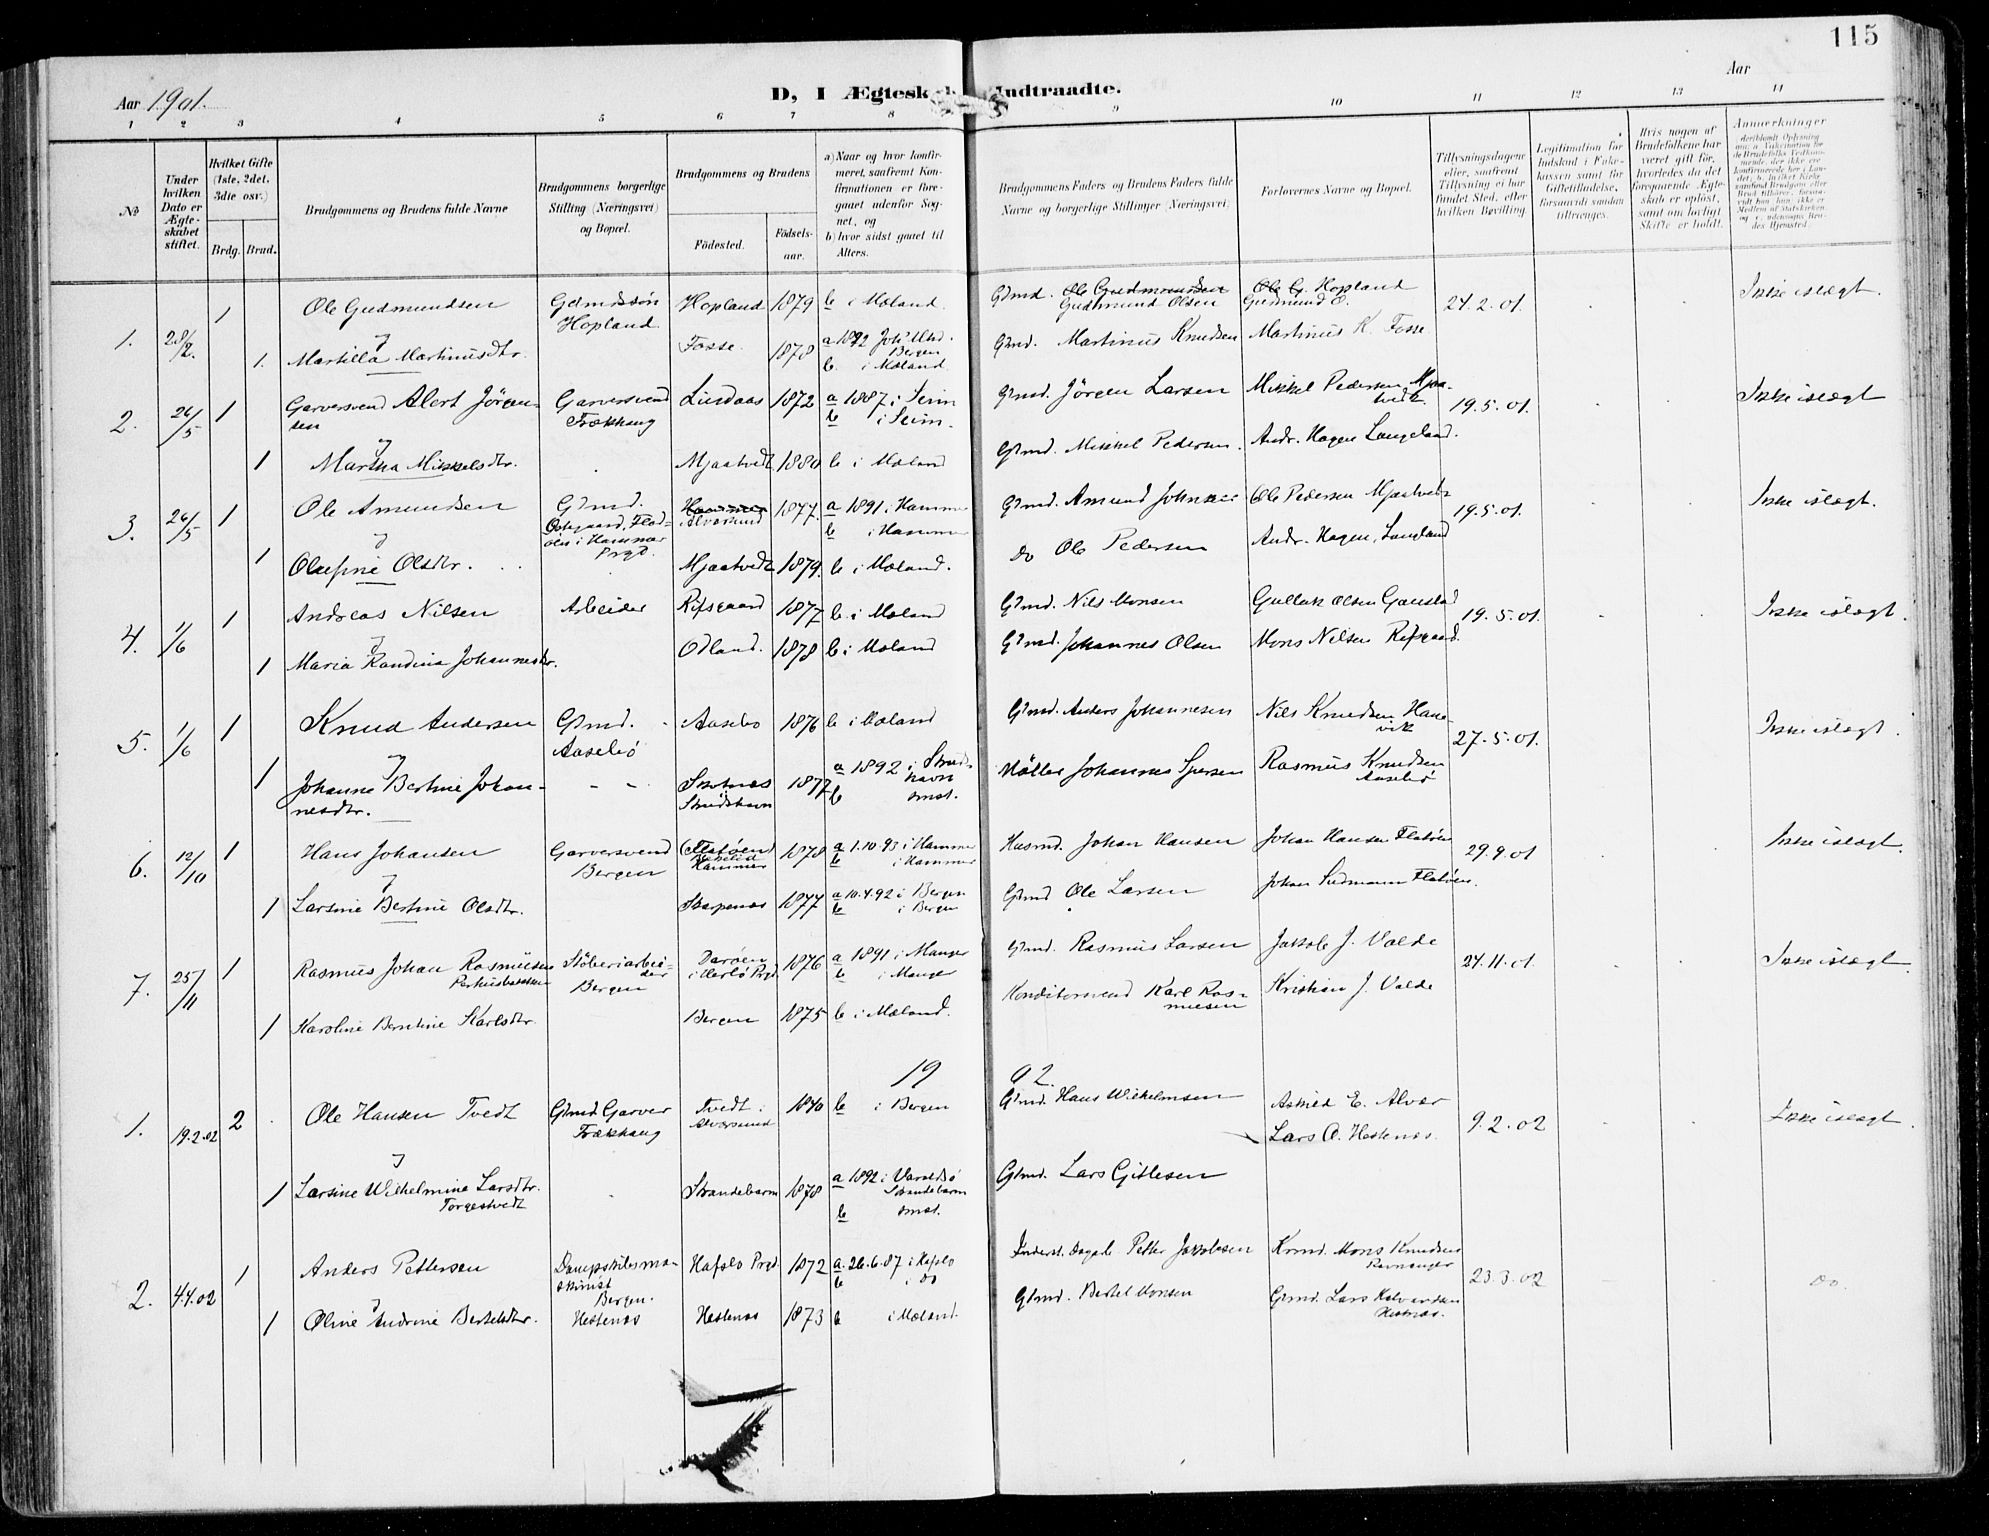 115
D, I Ægteskab Indtraadte.
Aar 1901.
Aar
1 2 3 4 5 6 7 8 9 10 11 12 13 14
№
Under hvilken Dato er Ægteskabet stiftet.
Hvilket Gifte (1ste, 2det, 3die osv.)
Brdg. Brud.
Brudgommens og Brudens fulde Navne
Brudgommens borgerlige Stilling (Næringsvei) og Bopæl.
Brudgommens og Brudens
Födested.
Födsels-aar.
a) Naar og hvor konfirmeret, saafremt Konfirmationen er foregaaet udenfor Sognet, og
b) hvor sidst gaaet til Alters.
Brudgommens Faders og Brudens Faders fulde Navne og borgerlige Stillinger (Næringsvei)
Forlovernes Navne og Bopæl.
Tillysningsdagene eller, saafremt Tillysning ei har fundet Sted, efter hvilken Bevilling
Legitimation for Indskud i Enkekassen samt for Giftetilladelse, forsaavidt saadan tiltrænges.
Hvis nogen af Brudefolkene har været gift för, hvorledes da det foregaaende Ægteskab er oplöst, samt om lovligt Skifte er holdt.
Anmærkninger
1. 28/2. 1 Ole Gudmundsen Gdmdssön Hopland 1879 b i Mæland. Gdmd. Ole Gudmundsen Ole G. Hopland 24.2.01. Ikke islægt.
Hopland. Gudmund Olsen Gudmund O.
&
1. Martilla Martinusdtr. Fosse. 1878 a 1892 Joh Bergen b. i Mæland Gdmd. Martinus Knudsen Martinus K. Fosse
2. 26/5 1 Garversvend Alert Jörgensen Garversvend Frækhaug Lindaas 1872 a 1887 i Seim b i Seim. Gdmd. Jörgen Larsen Mikkel Pedersen Mjaatvedt. 19.5.01. Ikke islægt
&
1 Martha Mikkelsdtr. Mjaatvedt 1880 b i Mæland Gdmd. Mikkel Pedersen. Andr. Hagen Langeland.
3. 26/5 1 Ole Amundsen Gdmd. Hammer Alversund 1877. a 1891 i Hammer b i Hammer Gdmd. Amund Johnsen Ole Pedersen Mjaatvedt 19.5.01. Ikke islægt.
i Hammer Prgd.
&
1 Olefine Olsdtr. Mjaatvedt 1879. b i Mæland. do Ole Pedersen Andr. Hagen, Langeland
4. 1/6 1 Andreas Nilsen Arbeider Refsgaard 1877 b i Mæland Gdmd. Nils Monsen Gullak Olsen 19.5.01. Ikke islægt.
&
1 Maria Randina Johannesdtr. Odland. 1878 b i Mæland Gdmd. Johannes Olsen Mons Nilsen Refsgaard.
5. 1/6 1 Knud Andersen Gdmd. Aasebö Aasebö 1876 b i Mæland Gdmd. Anders Johannesen Nils Knudsen Hanevik 27.5.01. Ikke islægt.
&
1 Johanne Bertine Johannesdtr. - - Skotnes 1877 a 1892 i b smst. Möller Johannes Rasmus Knudsen Aasebö
6. 12/10 1 Hans Johansen Garversvend Bergen (Flatöen) Hammer 1878 a 1.10.93 i Hammer b i Hammer Husmd. Johan Hansen Johan Hansen Flatöen 29.9.01 Ikke islægt.
&
1 Larsine Bertine Olsdtr. 1877 a 10.4.92 i Bergen b i Bergen Gdmd Ole Larsen Johan Flatöen.
7. 25/11 1 Rasmus Johan Rasmussen Bergen i Herlö Prgd. 1876 a 1891 i Manger b i Manger Gdmd. Rasmus Larsen Jakob J. Valde 24.11.01. Ikke islægt.
1 Karoline Berntine Karlsdtr. Bergen 1875 b i Mæland. Konditorsvend Karl Rasmussen Kristian J. Valde
19 02.
1. 19.2.02 2 Ole Hansen Tvedt Gdmd. Garver Frækhaug Tvedt. Alversund 1840 b i Bergen Gdmd. Hans Wilhelmsen E. Alvær 9.2.02 Ikke islægt.
Lars A. Hestenæs.
&
1 Larsine Wilhelmine Larsdtr. Torgestvedt Strandebarm 1878 a 1892 i Varaldsö Strandebarm b smst. Gdmd. Lars Gitlesen
2. 4.4.02 1 Anders Pettersen Dampskibsmaskinist Bergen. Hafslo Prgd. 1872 a. 26.6.87 i Hafslo b i do Petter Jakobsen Mons Knudsen 23.3.02 do
&
1 Oline Andrine Bertelsdtr. Hestenæs Hestenæs 1873 b i Mæland. Gdmd. Bertel Monsen Gdmd. Lars Halvordsen Hestnæs.